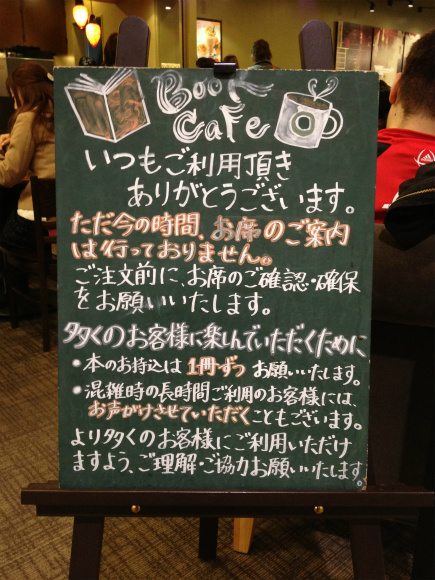 Book
Cafe
いつもご利用頂き
ありがとうございます。
ただ今の時間、お席のご案内
は行っておりません。
ご注文前に、お席のご確認・確保
をお願いいたします。
多くのお客様に楽しんでいただくために
• 本のお持込は 1冊ずつ お願いいたします。
• 混雑時の長時間ご利用のお客様には、
お声がけさせていただくこともございます。
より多くのお客様にご利用いただけ
ますよう、ご理解・ご協力お願いいたします。